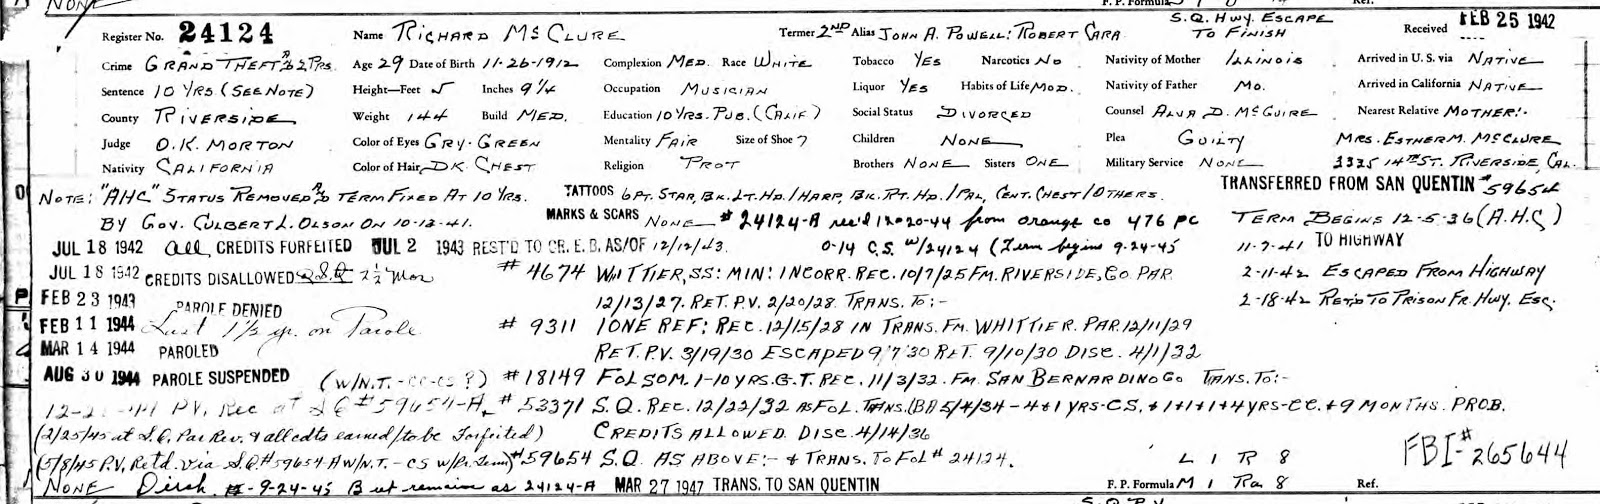 NONE
F. P. Formula Ref.
Register No. 24124 Name RICHARD McCLURE Termer 2ND Alias JOHN A. POWELL: ROBERT CARA S.Q. HWY. ESCAPE TO FINISH Received FEB 25 1942
Crime GRAND THEFT & 2 PRS. Age 29 Date of Birth 11-26-1912 Complexion MED. Race WHITE Tobacco YES Narcotics NO Nativity of Mother ILLINOIS Arrived in U. S. via NATIVE
Sentence 10 YRS. (SEE NOTE) Height—Feet 5 Inches 9 1/4 Occupation MUSICIAN Liquor YES Habits of Life MOD. Nativity of Father MO. Arrived in California NATIVE
County RIVERSIDE Weight 144 Build MED. Education 10 YRS. PUB. (CALIF) Social Status DIVORCED Counsel ALVA D. McGUIRE Nearest Relative MOTHER:-
Judge O.K. MORTON Color of Eyes GRY-GREEN Mentality FAIR Size of Shoe 7 Children NONE Plea GUILTY MRS. ESTHER M. McCLURE
Nativity CALIFORNIA Color of Hair DK. CHEST Religion PROT Brothers NONE Sisters ONE Military Service NONE 3335 14TH ST. RIVERSIDE, CAL.
NOTE: "AHC" STATUS REMOVED & TERM FIXED AT 10 YRS. TATTOOS 6 PT. STAR, BK. LT. HD. / HARP, BK. RT. HD. / PAL, CENT. CHEST / OTHERS. TRANSFERRED FROM SAN QUENTIN #59654
BY GOV. CULBERT L. OLSON ON 10-13-41. MARKS & SCARS NONE #24124-A rec'd 12-20-44 from orange co 476 pc TERM BEGINS 12-5-36 (A.H.C)
JUL 18 1942 all CREDITS FORFEITED JUL 2 1943 REST'D TO CR. E.B. AS/OF 12/12/43. 0-14 C.S. w/24124 (Term begins 9-24-45 11-7-41 TO HIGHWAY
JUL 18 1942 CREDITS DISALLOWED 7½ mos #4674 WHITTIER, SS: MIN: INCORR. REC. 10/7/25 FM. RIVERSIDE, CO. PAR. 2-11-42 ESCAPED FROM HIGHWAY
FEB 23 1943 PAROLE DENIED 12/13/27. RET. P.V. 2/20/28. TRANS. TO:- 2-18-42 RET'D TO PRISON FR. HWY. ESC.
FEB 11 1944 Last 1½ yr. on Parole #9311 IONE REF: REC. 12/15/28 IN TRANS. FM. WHITTIER. PAR. 12/11/29
MAR 14 1944 PAROLED RET. P.V. 3/19/30 ESCAPED 9/7/30 RET. 9/10/30 DISC. 4/1/32
AUG 30 1944 PAROLE SUSPENDED (W/N.T.-CC-CS?) #18149 FOLSOM. 1-10 YRS. G.T. REC. 11/3/32. FM. SAN BERNARDINO CO TRANS. TO:-
P.V. Rec at S.Q #59654-A, #53371 S.Q. REC. 12/22/32 AS FOL. TRANS. (BA 5/4/34 - 4+1 YRS-CS. & 1+1+1+4 YRS-CC. & 9 MONTHS. PROB.
(2/25/45 at S.Q. Par Rev. & all cdts earned/to be Forfeited) CREDITS ALLOWED. DISC. 4/14/36
(5/8/45 P.V. Retd. via S.Q #59654-A W/N.T.-CS w/Pr. Term) #59654 S.Q. AS ABOVE:- & TRANS. TO FOL # 24124. L 1 R 8 FBI-#265644
NONE Disch. 9-24-45 But remains as 24124-A MAR 27 1947 TRANS. TO SAN QUENTIN F. P. Formula M 1 Ra 8 Ref.